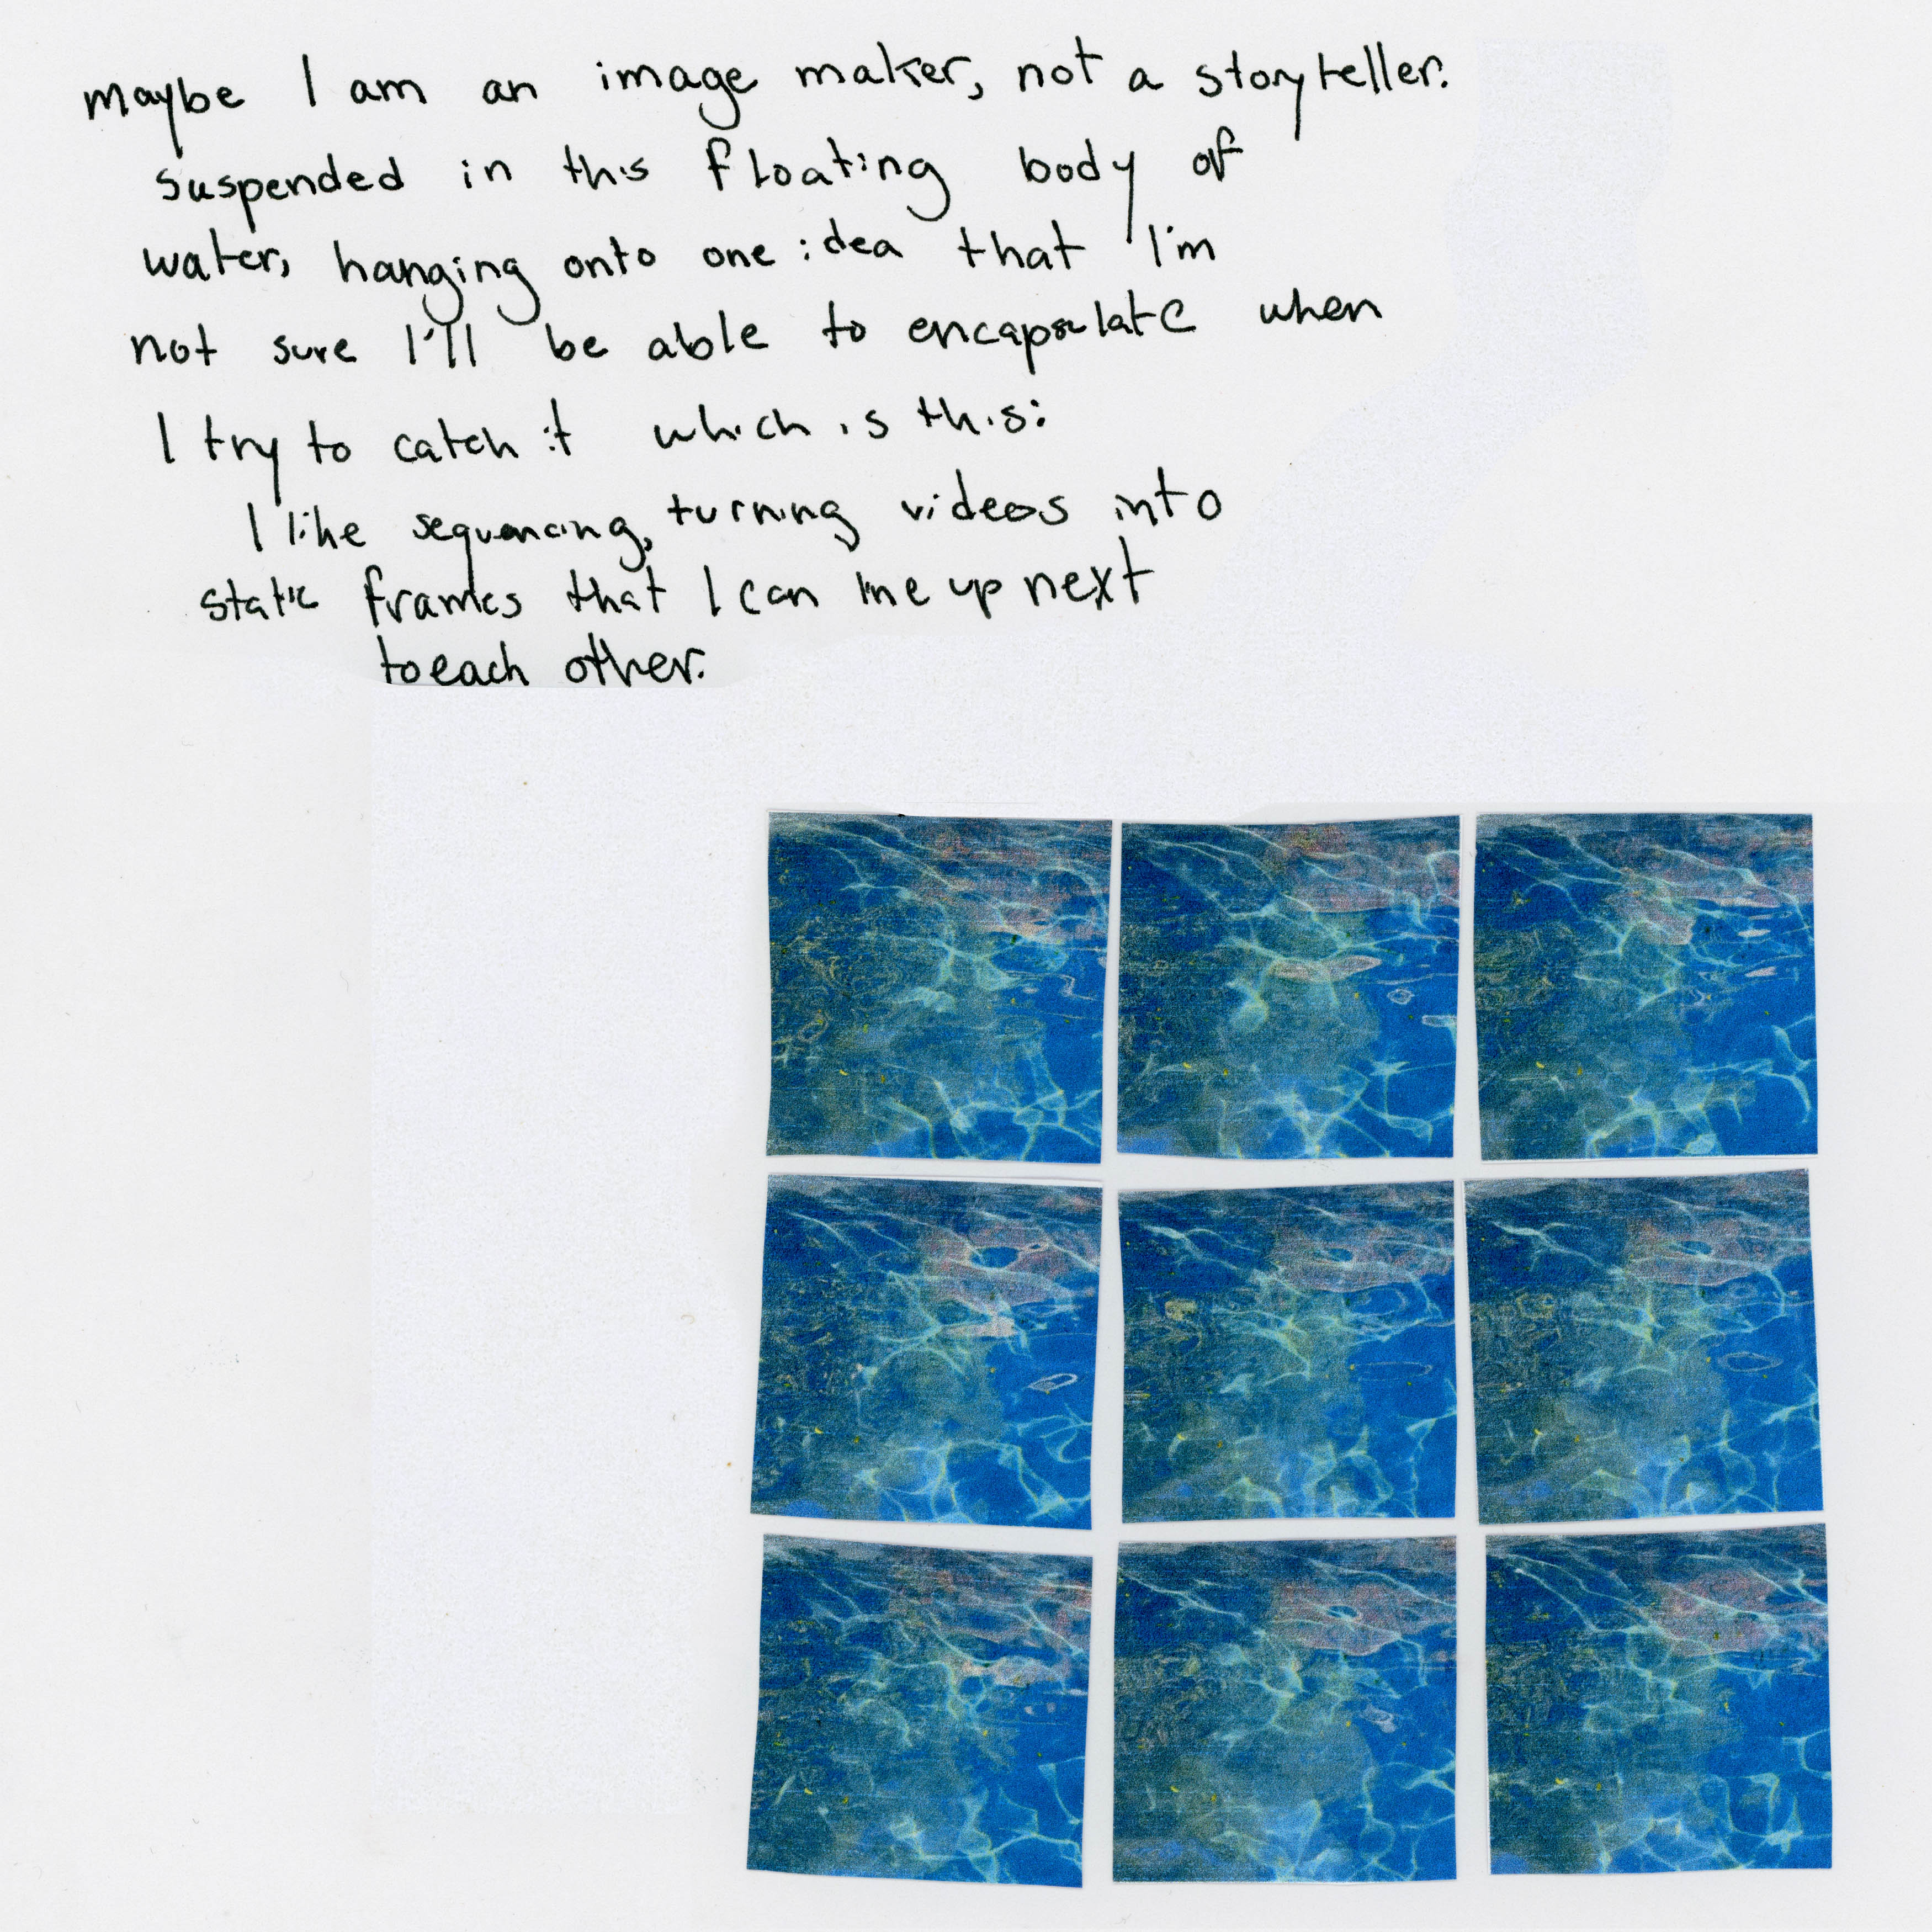 maybe I am an image maker, not a storyteller.
suspended in this floating body of
water, hanging onto one idea that I'm
not sure I'll be able to encapsulate when
I try to catch it which is this:
I like sequencing, turning videos into
static frames that I can line up next
to each other.